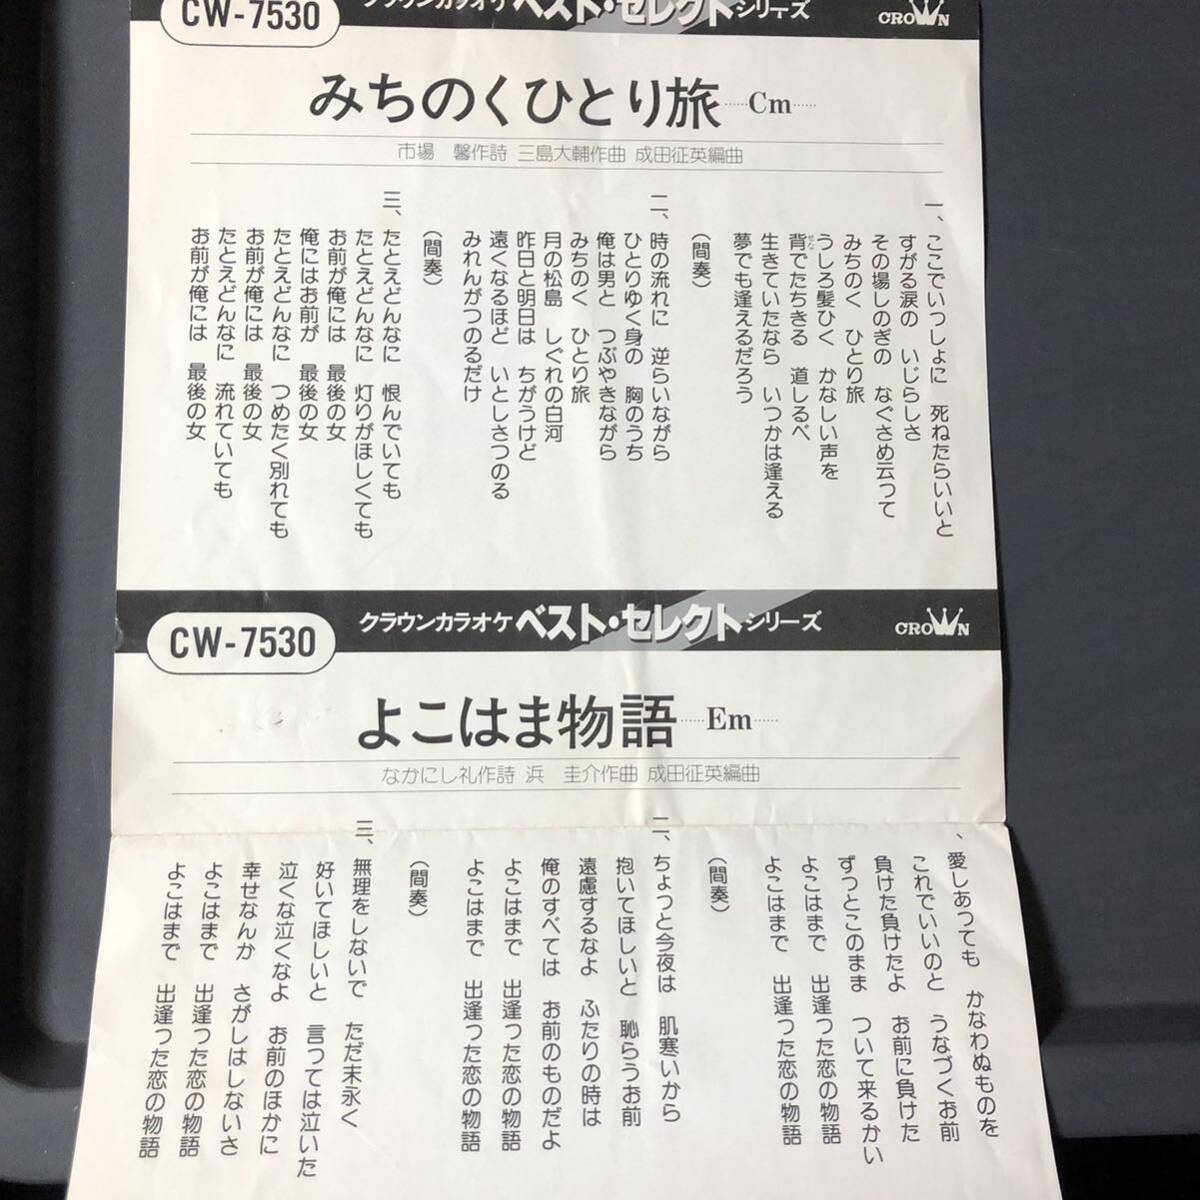 CW-7530
クラウンカラオケ ベスト・セレクトシリーズ
CROWN
みちのくひとり旅 ……Cm……
市場 馨作詩 三島大輔作曲 成田征英編曲
一、ここでいっしょに 死ねたらいいと
すがる涙の いじらしさ
その場しのぎの なぐさめ云って
みちのく ひとり旅
うしろ髪ひく かなしい声を
背でたちきる 道しるべ
せな
生きていたなら いつかは逢える
夢でも逢えるだろう
(間奏)
二、時の流れに 逆らいながら
ひとりゆく身の 胸のうち
俺は男と つぶやきながら
みちのく ひとり旅
月の松島 しぐれの白河
昨日と明日は ちがうけど
遠くなるほど いとしさつのる
みれんがつのるだけ
(間奏)
三、たとえどんなに 恨んでいても
たとえどんなに 灯りがほしくても
お前が俺には 最後の女
俺にはお前が 最後の女
たとえどんなに つめたく別れても
お前が俺には 最後の女
たとえどんなに 流れていても
お前が俺には 最後の女
CW-7530
クラウンカラオケ ベスト・セレクトシリーズ
CROWN
よこはま物語 ……Em……
なかにし礼作詩 浜 圭介作曲 成田征英編曲
、愛しあっても かなわぬものを
これでいいのと うなづくお前
負けた負けたよ お前に負けた
ずっとこのまま ついて来るかい
よこはまで 出逢った恋の物語
よこはまで 出逢った恋の物語
(間奏)
二、ちょっと今夜は 肌寒いから
抱いてほしいと 恥らうお前
遠慮するなよ ふたりの時は
俺のすべては お前のものだよ
よこはまで 出逢った恋の物語
よこはまで 出逢った恋の物語
(間奏)
三、無理をしないで ただ末永く
好いてほしいと 言っては泣いた
泣くな泣くなよ お前のほかに
幸せなんか さがしはしないさ
よこはまで 出逢った恋の物語
よこはまで 出逢った恋の物語